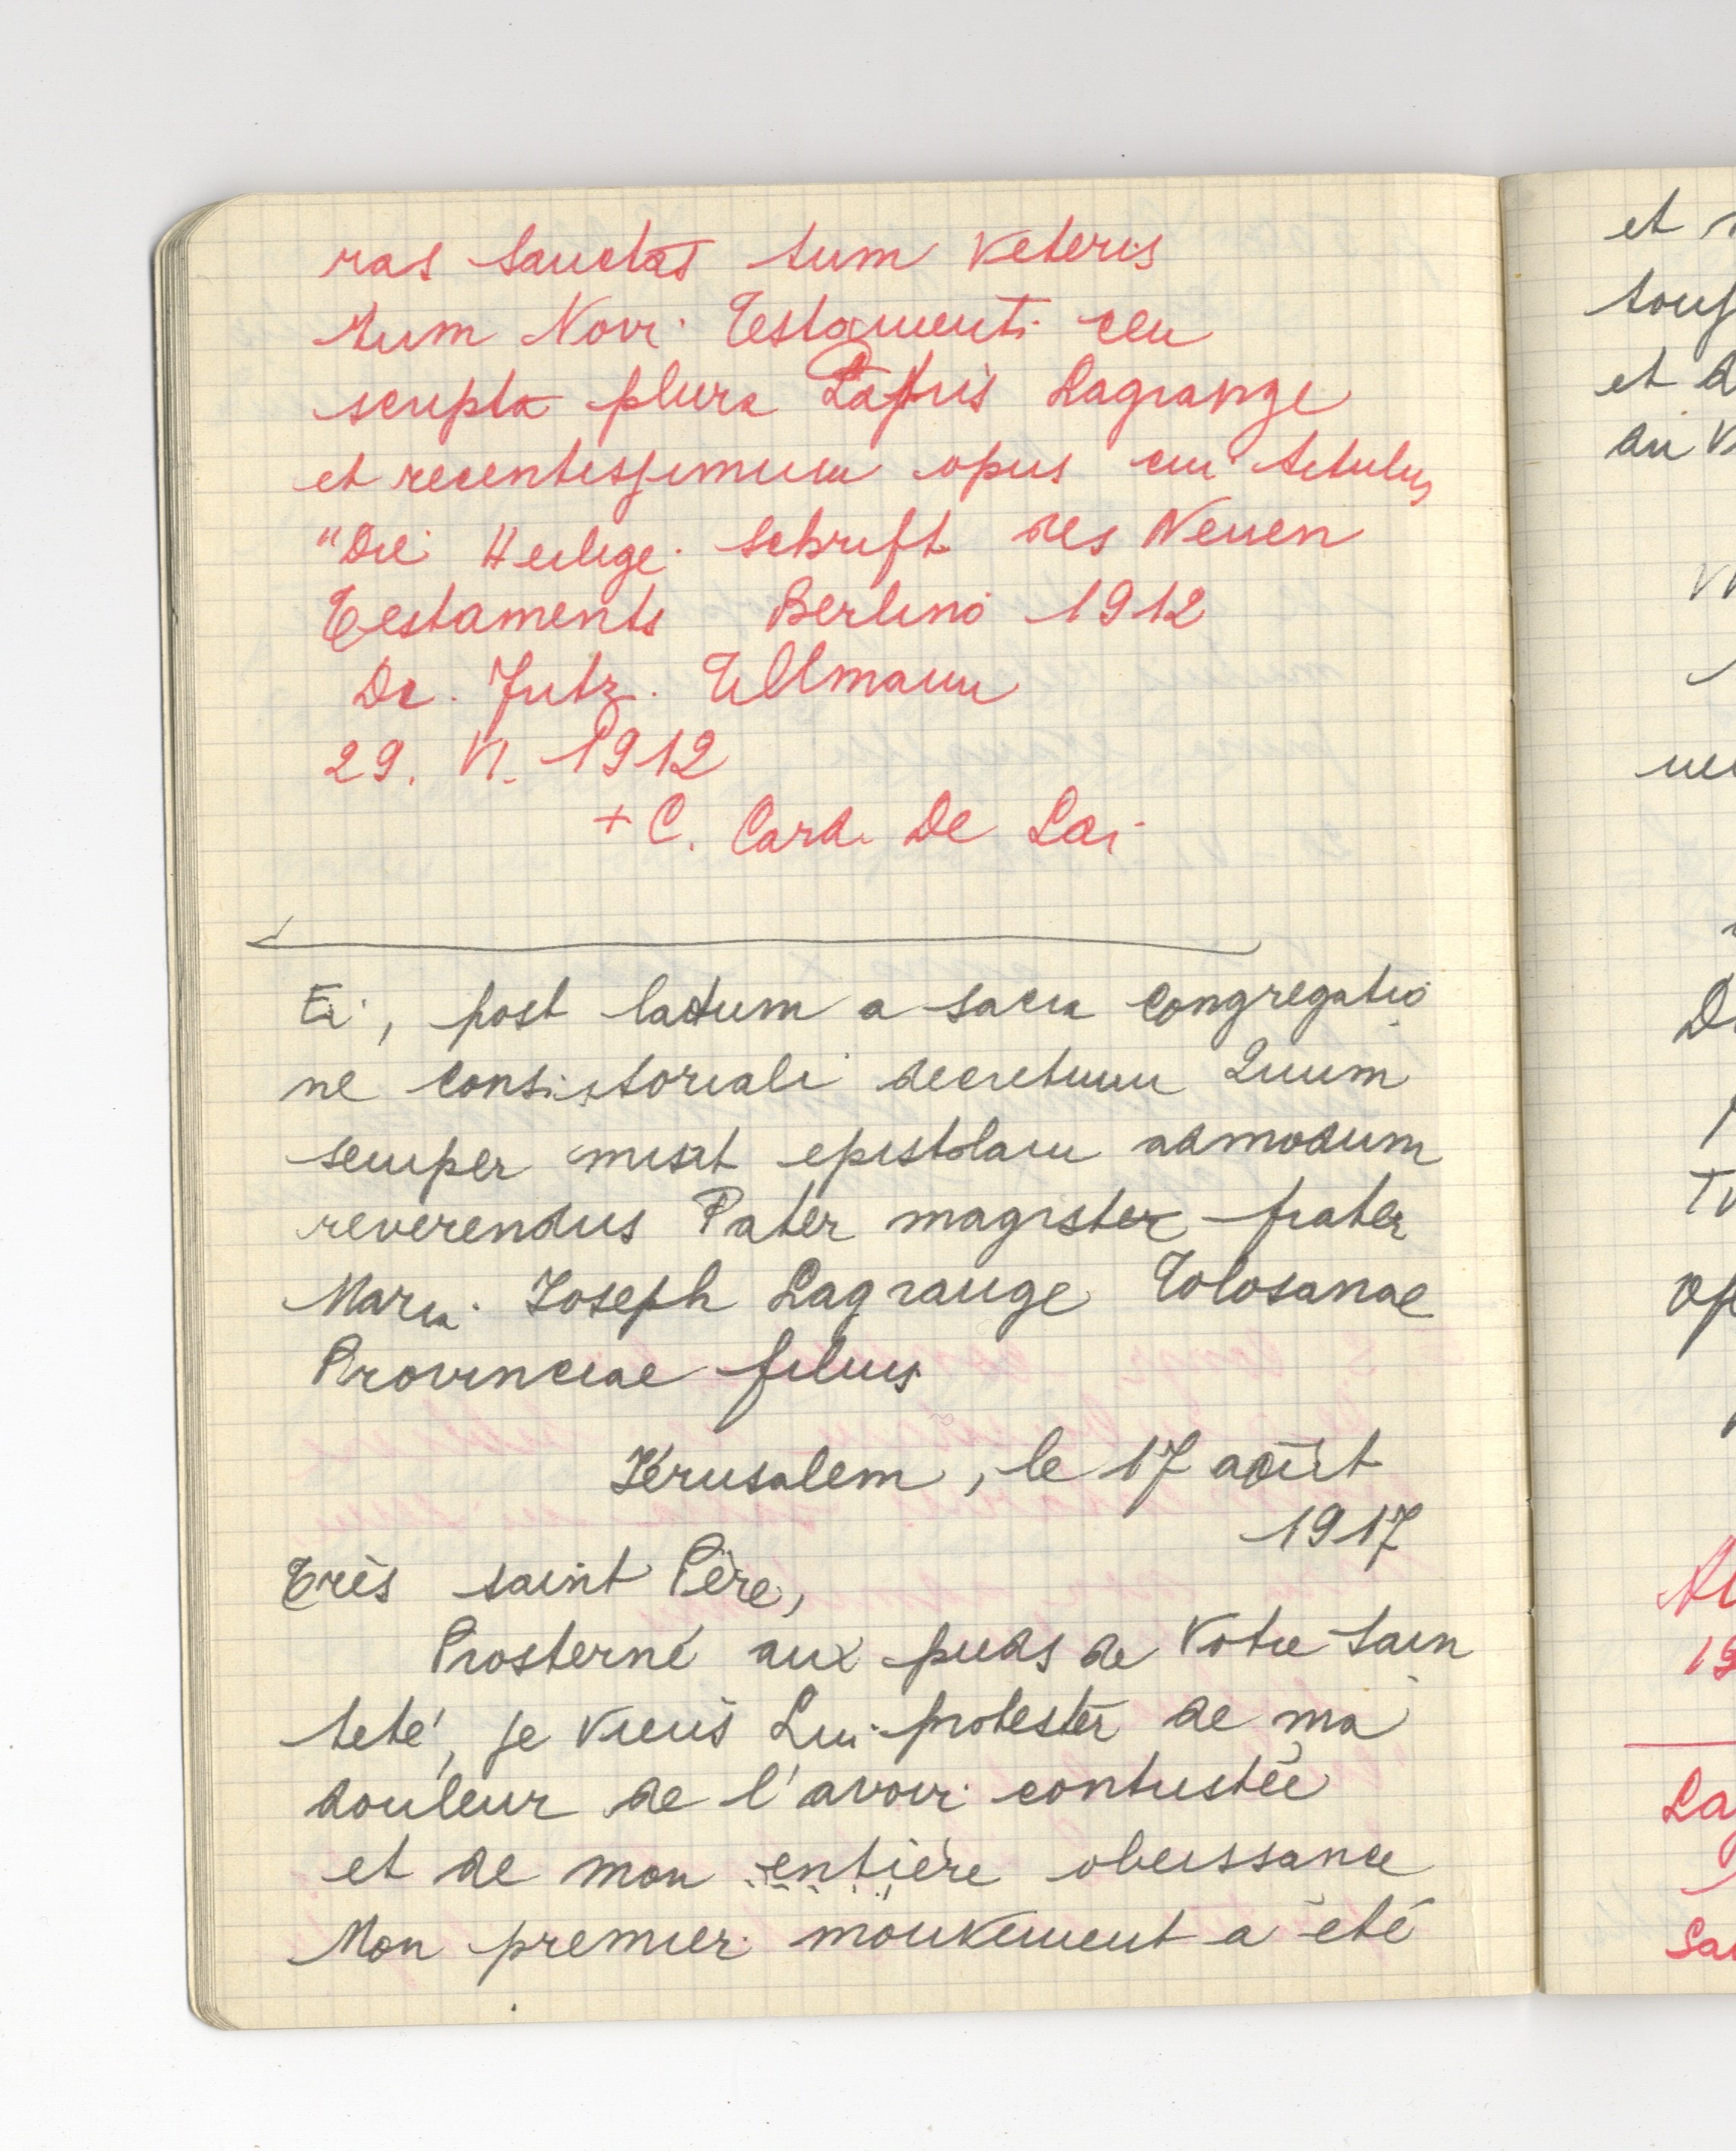 ras Sanctas tum Veteris
tum Novi Testamenti ceu
scripta plura Patris Lagrange
et recentissimum opus cui titulus
"Die Heilige Schrift des Neuen
Testaments Berlino 1912
Dr. Fritz Tillmann
29. VI. 1912
+ C. Card. De Lai
Ei, post latum a sacra Congregatio
ne consistoriali decretum Quum
semper misit epistolam admodum
reverendus Pater magister frater
Maria Joseph Lagrange Tolosanae
Provinciae filius
Jérusalem, le 17 août
1917
Très saint Père,
Prosterné aux pieds de Votre Sain
teté, je viens Lui protester de ma
douleur de l'avoir contristée
et de mon entière obeissance
Mon premier mouvement a été
et
et